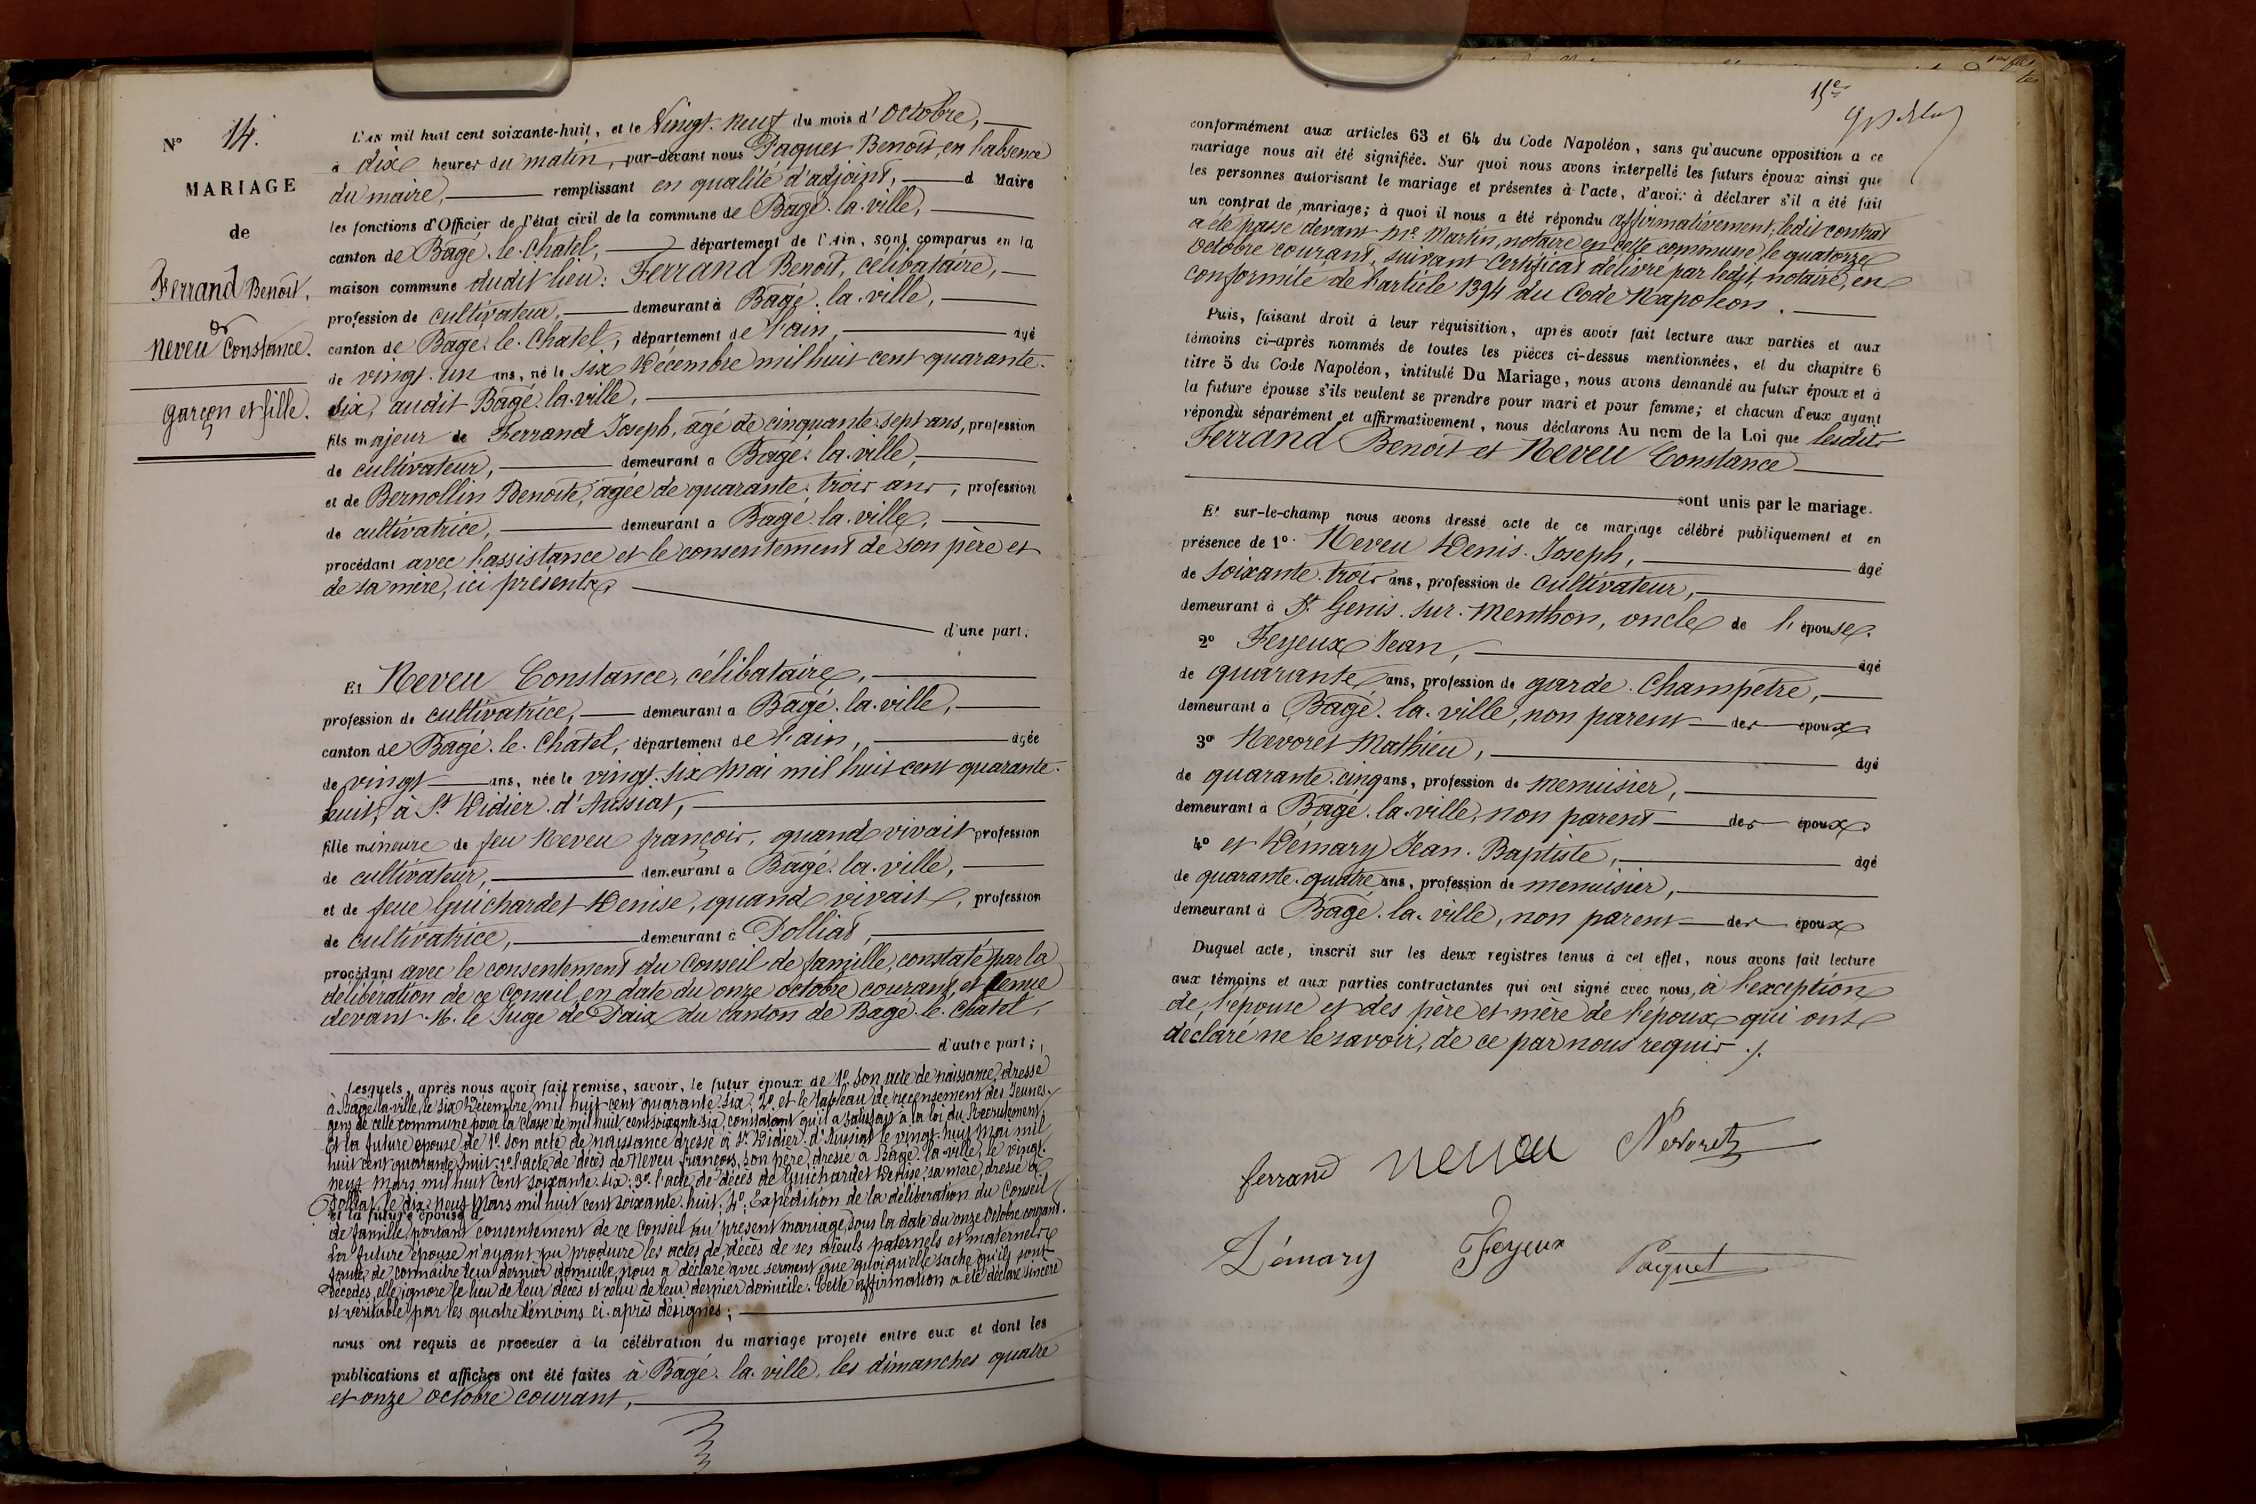 N° 14.
MARIAGE
de
Ferrand Benoît,
&
Neveu Constance.
garçon et fille.
L'an mil huit cent soixante-huit, et le Vingt-neuf du mois d'octobre,
à dix heures du matin, par-devant nous Paquet Benoit, en l'absence
du maire, remplissant en qualité d'adjoint, d Maire
les fonctions d'Officier de l'état civil de la commune de Bagé-la-ville,
canton de Bagé-le-Châtel, département de l'Ain, sont comparus en la
maison commune dudit lieu: Ferrand Benoît, célibataire,
profession de cultivateur, demeurant à Bagé-la-ville,
canton de Bagé-le-Chatel, département de l'ain, âgé
de vingt-un ans, né le six Décembre mil huit cent quarante-
six, audit Bagé-la-ville,
fils majeur de Ferrand Joseph, âgé de cinquante-sept ans, profession
de cultivateur, demeurant à Bagé-la-ville,
et de Bernollin Benoite, agée de quarante-trois ans, profession
de cultivatrice, demeurant à Bagé-la-ville,
procédant avec l'assistance et le consentement de son père et
de sa mère, ici présents,
d'une part.
Et Neveu Constance, célibataire,
profession de cultivatrice, demeurant à Bagé-la-ville,
canton de Bagé-le-Châtel, département de l'ain, âgée
de vingt ans, née le vingt-six Mai mil huit cent quarante-
huit, à St Didier-d'Aussiat,
fille mineure de feu Neveu françois, quand vivait profession
de cultivateur, demeurant à Bagé-la-ville,
et de feue Guichardet Denise, quand vivait, profession
de cultivatrice, demeurant à Polliat,
procédant avec le consentement du Conseil de famille, constaté par la
délibération de ce Conseil, en date du onze octobre courant, et tenue
devant M. le Juge de Paix du canton de Bagé-le-Chatel,
d'autre part;
Lesquels, après nous avoir fait remise, savoir, le futur époux de 1° son acte de naissance, dressé
à Bagé-la-ville, le six Décembre mil huit cent quarante-six; 2° et le tableau de recensement des Jeunes-
gens de cette commune pour la classe de mil huit cent soixante-six, constatant qu'il a satisfait à la loi du Recrutement;
Et la future épouse de 1° son acte de naissance dressé à St Didier-d'Aussiat le vingt-huit Mai mil
huit cent quarante-huit; 2° l'acte de décès de Neveu françois, son père, dressé à Bagé-la-ville, le vingt-
neuf Mars mil huit cent soixante-six; 3° l'acte de décès de Guichardet Denise, sa mère, dressé à
Polliat, le dix-neuf Mars mil huit cent soixante-huit; 4° Expédition de la délibération du Conseil
et la future épouse d
de famille, portant consentement de ce Conseil au présent mariage, sous la date du onze Octobre courant.
La future épouse n'ayant pu produire les actes de décès de ses aïeuls paternels et maternels,
faute de connaitre leur dernier domicile, nous a déclaré avec serment que quoiqu'elle sache qu'ils sont
décédés, elle ignore le lieu de leur décès et celui de leur dernier domicile. Cette affirmation a été déclaré sincère
et véritable par les quatre témoins ci-après désignés;
nous ont requis de procéder à la célébration du mariage projeté entre eux et dont les
publications et affiches ont été faites à Bagé-la-ville, les dimanches quatre
et onze octobre courant,
15e
conformément aux articles 63 et 64 du Code Napoléon, sans qu'aucune opposition à ce
mariage nous ait été signifiée. Sur quoi nous avons interpellé les futurs époux ainsi que
les personnes autorisant le mariage et présentes à l'acte, d'avoir à déclarer s'il a été fait
un contrat de mariage; à quoi il nous a été répondu affirmativement, ledit contrat
a été passé devant Me Martin, notaire en cette commune, le quatorze
Octobre courant, suivant Certificat délivré par ledit notaire, en
conformité de l'article 1394 du Code Napoléon.
Puis, faisant droit à leur réquisition, après avoir fait lecture aux parties et aux
témoins ci-après nommés de toutes les pièces ci-dessus mentionnées, et du chapitre 6
titre 5 du Code Napoléon, intitulé Du Mariage, nous avons demandé au futur époux et à
la future épouse s'ils veulent se prendre pour mari et pour femme; et chacun d'eux ayant
répondu séparément et affirmativement, nous déclarons Au nom de la Loi que lesdits
Ferrand Benoît et Neveu Constance
sont unis par le mariage.
Et sur-le-champ nous avons dressé acte de ce mariage célébré publiquement et en
présence de 1° Neveu Denis-Joseph, âgé
de soixante-trois ans, profession de cultivateur,
demeurant à St Genis-sur-Menthon, oncle de l'épouse.
2° Feyeux Jean, âgé
de quarante ans, profession de garde-Champêtre,
demeurant à Bagé-la-ville, non parent des époux.
3° Nevoret Mathieu, âgé
de quarante-cinq ans, profession de menuisier,
demeurant à Bagé-la-ville, non parent des époux.
4° et Démary Jean-Baptiste, âgé
de quarante-quatre ans, profession de menuisier,
demeurant à Bagé-la-ville, non parent des époux
Duquel acte, inscrit sur les deux registres tenus à cet effet, nous avons fait lecture
aux témoins et aux parties contractantes qui ont signé avec nous, à l'exception
de l'épouse et des père et mère de l'époux qui ont
déclaré ne le savoir, de ce par nous requis ./.
ferrand neveu Nevoret
Démary Feyeux Paquet